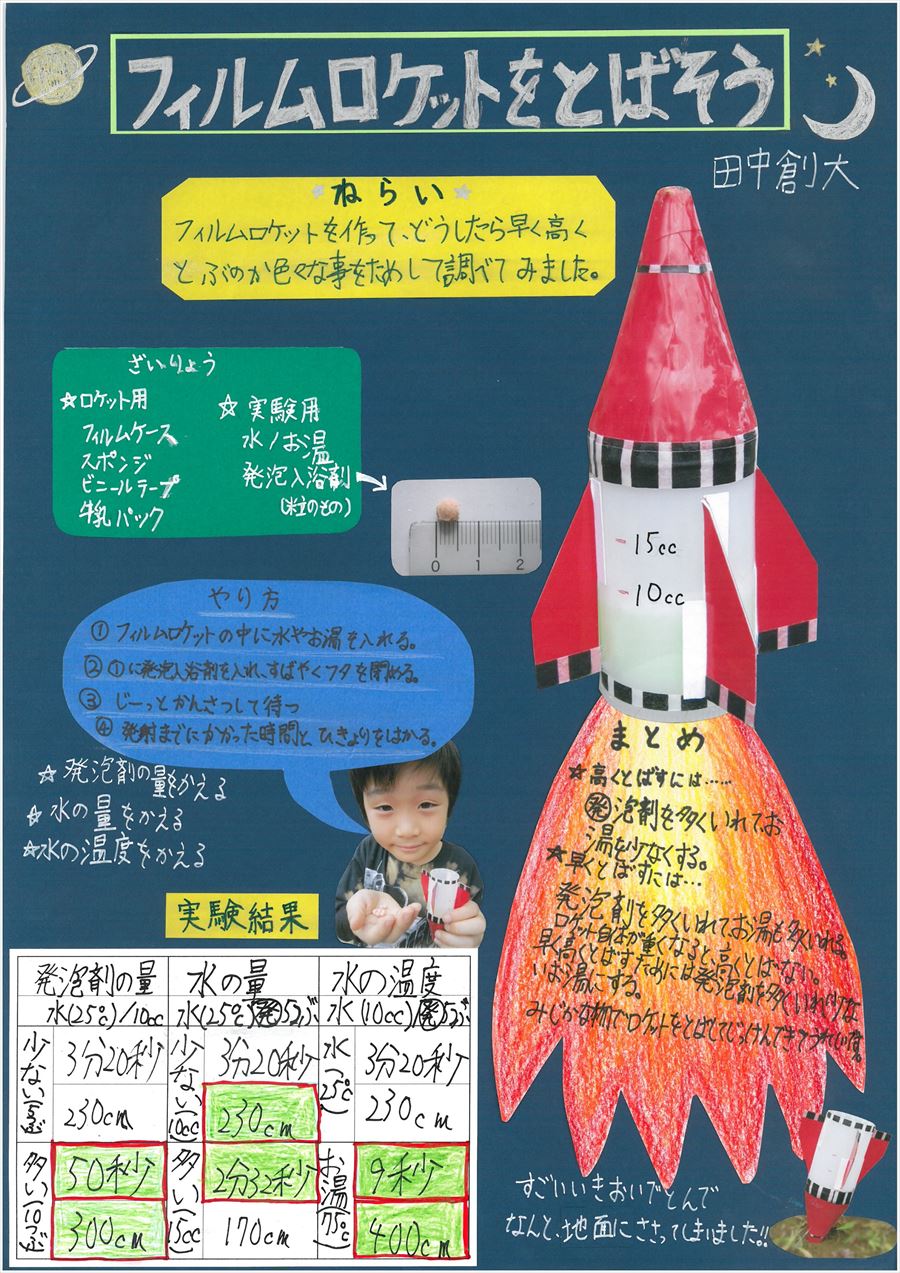 フィルムロケットをとばそう
田中創大
ねらい
フィルムロケットを作って、どうしたら早く高く
とぶのか色々な事をためして調べてみました。
ざいりょう
☆ロケット用
フィルムケース
スポンジ
ビニールテープ
牛乳パック
☆実験用
水/お湯
発泡入浴剤
(粒のもの)
0 1 2
15cc
10cc
やり方
① フィルムロケットの中に水やお湯を入れる。
② ①に発泡入浴剤を入れ、すばやくフタを閉める。
③ じーっとかんさつして待つ
④ 発射までにかかった時間とひきょりをはかる。
☆発泡剤の量をかえる
☆水の量をかえる
☆水の温度をかえる
まとめ
★高くとばすには……
発泡剤を多くいれてお
湯を少なくする。
★早くとばすには…
発泡剤を多くいれてお湯も多くいれる。
ロケット自体が重くなると高くとばない。
早高くとばす為には発泡剤を多くいれ少な
いお湯にする。
みじかな物でロケットをとばしてじっけんできてうれしい
実験結果
発泡剤の量 水の量 水の温度
水(25℃)/10cc 水(25℃)発5つぶ 水(10cc)発5つぶ
少ない(5つぶ) 3分20秒 少ない(10cc) 3分20秒 水(25℃) 3分20秒
230cm 230cm 230cm
多い(10つぶ) 50秒 多い(15cc) 2分32秒 お湯(75℃) 9秒
300cm 170cm 400cm
すごいいきおいでとんで
なんと、地面にささってしまいました!!